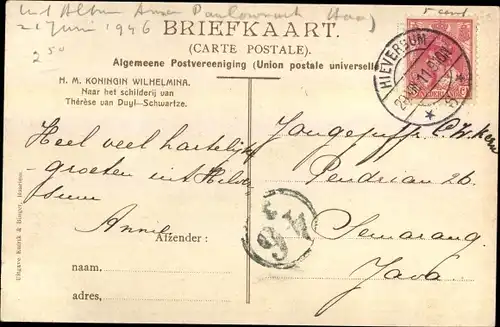 uit Album Anna Paulowna
21 Juni 1946
5 cent
2.50
BRIEFKAART.
(CARTE POSTALE).
Algemeene Postvereeniging (Union postale universelle)
H. M. KONINGIN WILHELMINA.
Naar het schilderij van
Thérèse van Duyl—Schwartze.
HILVERSUM
NEDERLAND
Heel veel hartelijke
groeten uit Hilver
sum
Annie
Afzender:
naam,
adres,
Pendrian 26
Semarang.
Java.
Uitgave Kunink & Haarlem.